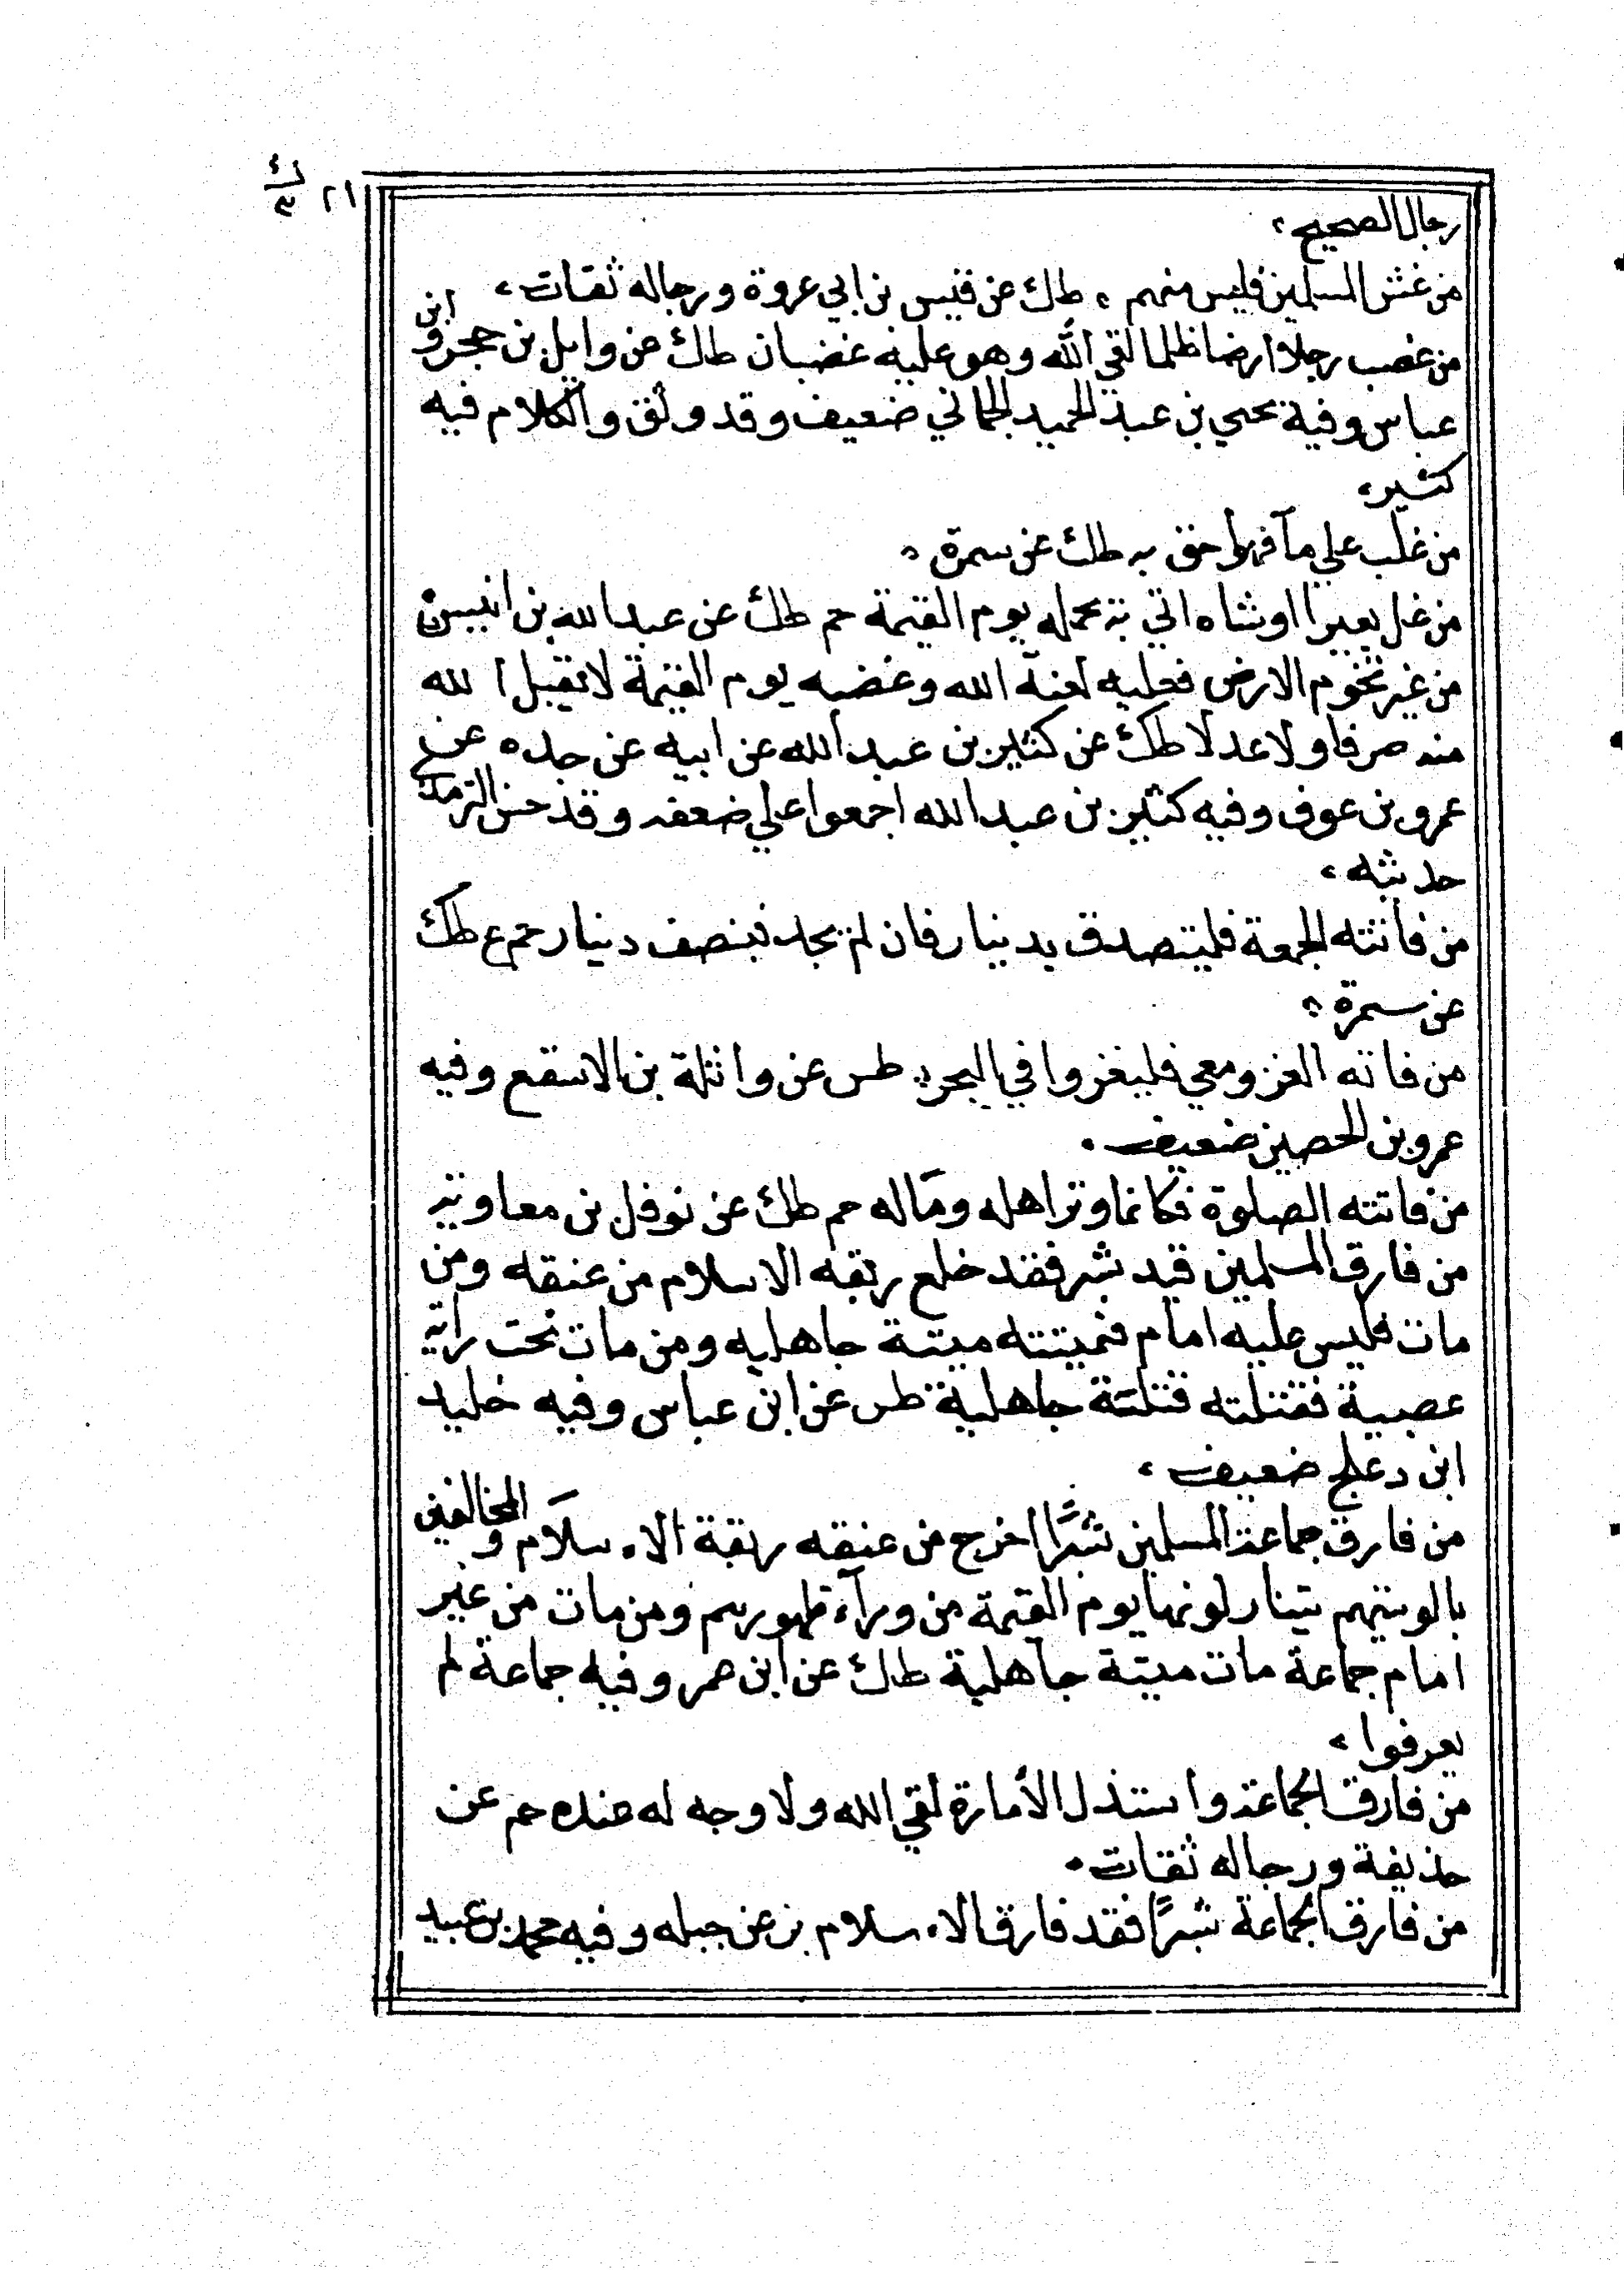 ٢١
رجال الصحيح،
من غش المسلمين فليس منهم، طك عن قيس بن ابي عروة ورجاله ثقات،
من غصب رجلا ارضا ظلما لقي الله وهو عليه غضبان طك عن وايل بن حجر و ابن
عباس وفية يحيى بن عبد الحميد الحماني ضعيف وقد وثق والكلام فيه
كثير،
من غلب علي مآ فهوا حق به طك عن سمرة،
من غل بعيرا اوشاه اتي به يحمله يوم القيمة حم طك عن عبد الله بن انيس
من غير تخوم الارض فعليه لعنة الله وغضبه يوم القيمة لا يقبل ا لله
منه صرفا ولا عدلا طك عن كثير بن عبد الله عن ابيه عن جده عن
عمرو بن عوف وفيه كثير بن عبد الله اجمعوا علي ضعفه وقد حسن الترمذي
حديثه،
من فاتته الجمعة فليتصدق بدينار فان لم يجد فبنصف دينار حم ع طك
عن سمرة،
من فاته الغزو معي فليغزوا في البحر، طس عن واثلة بن الاسقع وفيه
عمرو بن الحصين ضعيف.
من فاتته الصلوة فكانما وتر اهله وماله حم طك عن نوفل بن معاوية
من فارق المسلمين قيد شبر فقد خلع ربقه الاسلام من عنقه ومن
مات فليس عليه امام فميتته ميتة جاهليه ومن مات تحت راية
عصبية فقتلته قتلتة جاهلية طس عن ابن عباس وفيه خليد
ابن دعلج ضعيف،
من فارق جماعة المسلمين شبرًا اخرج من عنقه ربقة الاسلام و المخالفين
بالويتهم يتناولونها يوم القيمة من ورآء ظهورهم ومن مات من غير
امام جماعة مات ميتة جاهلية طك عن ابن عمر وفيه جماعة لم
يعرفوا،
من فارق الجماعة واستذل الأمارة لقي الله ولا وجه له عنده حم عن
حذيفة ورجاله ثقات.
من فارق الجماعة شبرًا فقد فارق الاسلام بز عن جبله وفيه محمد بن عبيد